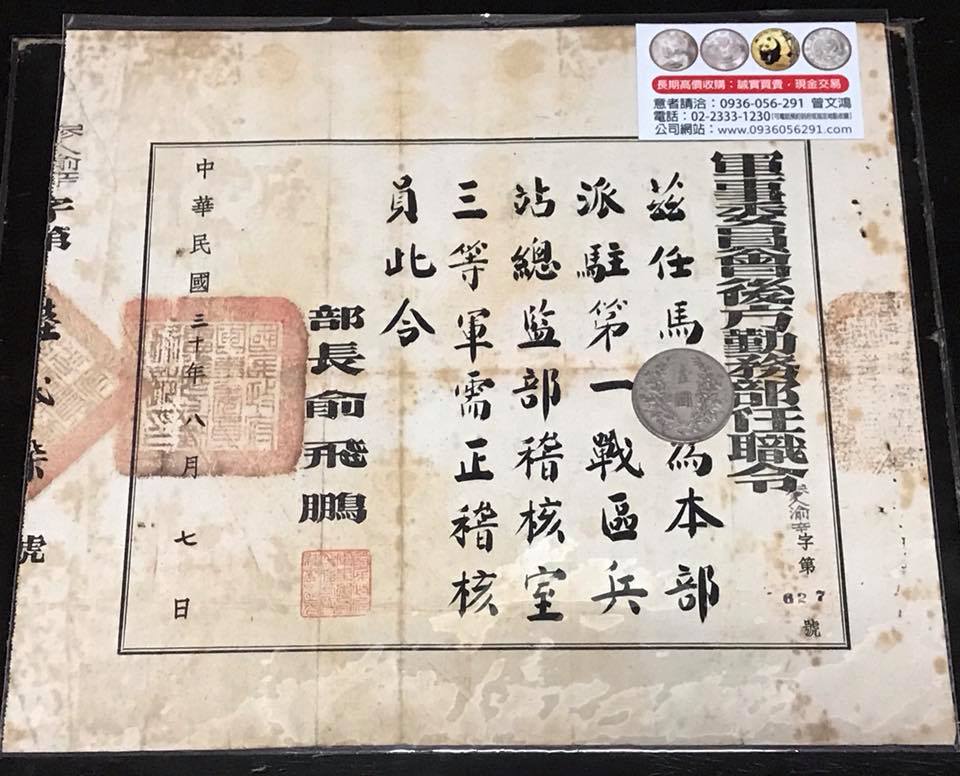 長期高價收購：誠實買賣，現金交易
意者請洽：0936-056-291 曾文鴻
電話：02-2333-1230
公司網站：www.0936056291.com
軍事委員會後方勤務部任職令
渝 字第627號
茲任馬 為本部
派駐第一戰區兵
站總監部稽核室
三等軍需正稽核
員此令
部長俞飛鵬
中華民國三十年八月七日
字第 號